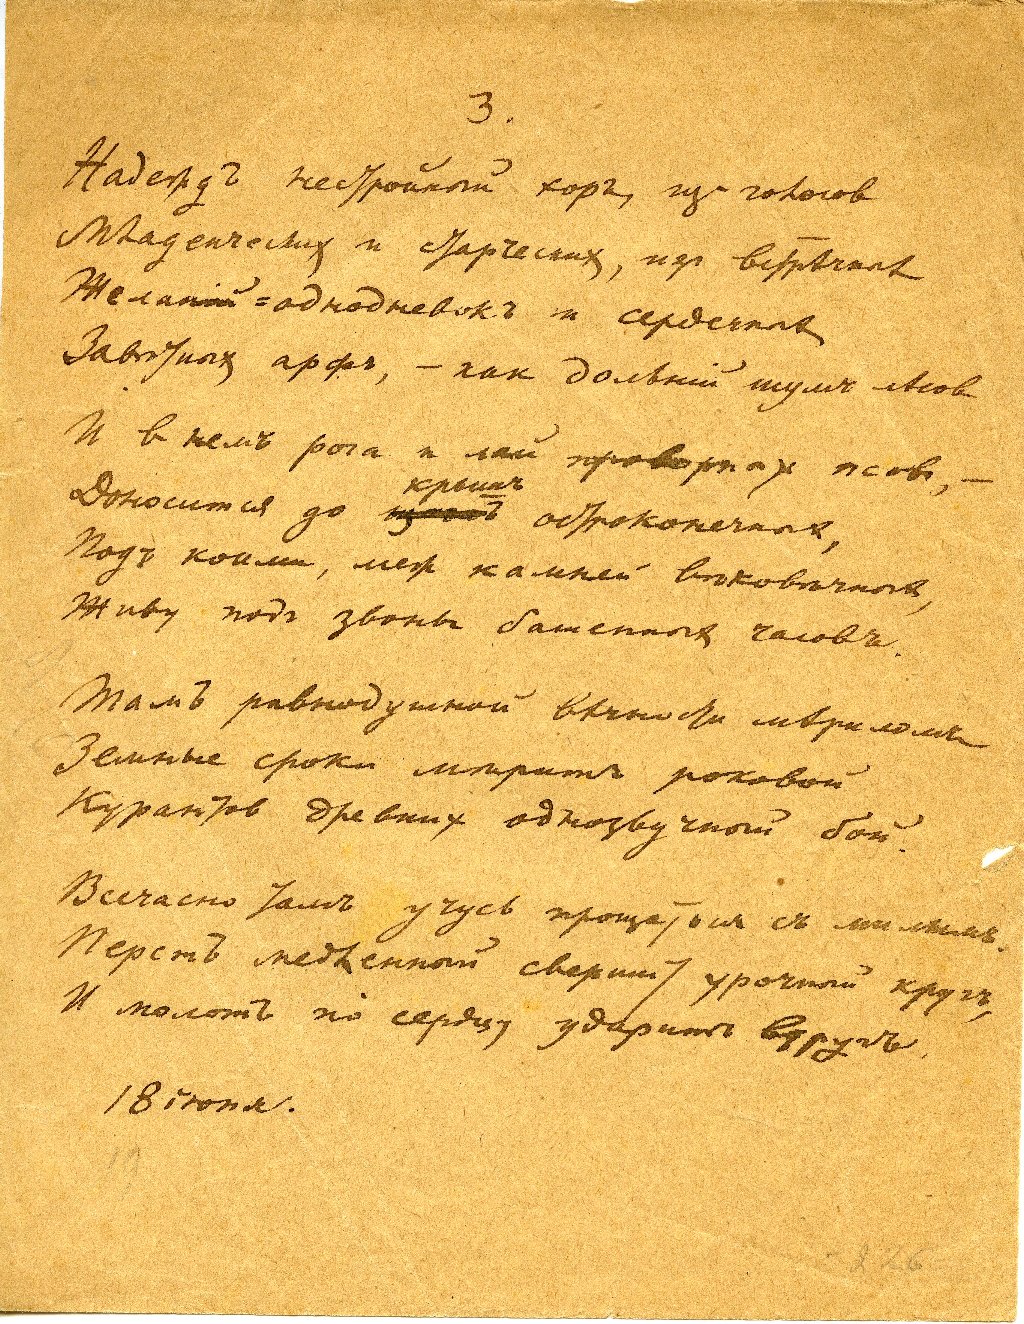 3.
Надеждъ нестройный хоръ, из голосов
Младенческих и старческих, изъ встрѣчных
Желаній-однодневокъ и сердечных
Завѣтных арфъ, – как дольній шумъ лѣсов
И в немъ рога и лай проворных псовъ, –
крышъ
Доносится до остроконечных,
Подъ коими, меж камней вѣковѣчных,
Живу подъ звоны башенных часовъ.
Тамъ равнодушной вѣчности мѣриломъ
Земные сроки мѣритъ роковой
Курантов древних однозвучный бой.
Всечасно тамъ учусь прощаться съ милымъ.
Перстъ медленный свершит урочный кругъ,
И молотъ по сердцу ударитъ вдругъ.
18 іюня.
226